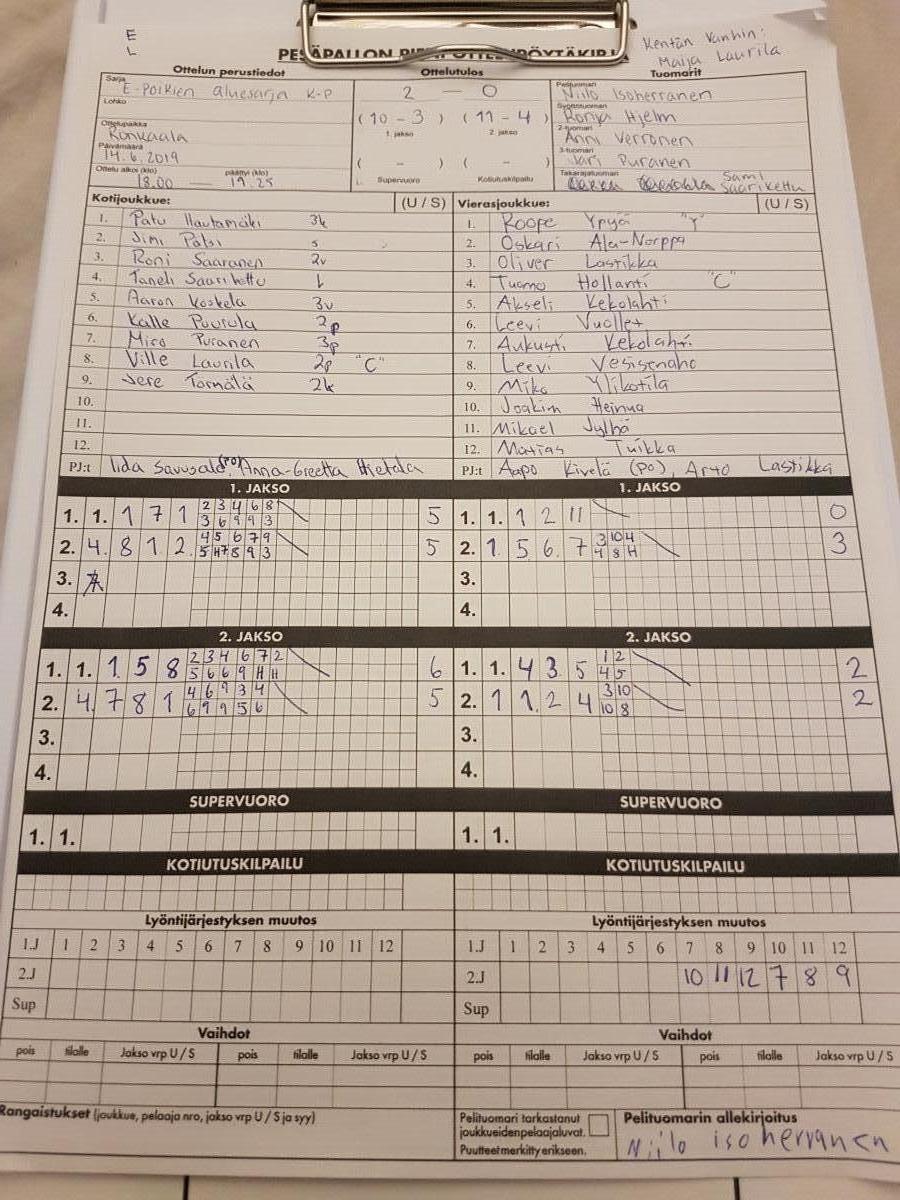 E
L
Kentän Vanhin:
Maija Laurila
Ottelun perustiedot
Ottelutulos
Tuomarit
Sarja E-Poikien aluesarja K-P
2 — 0
Pelituomari Niilo Isoherranen
Lohko
Syöttötuomari Ronja Hjelm
(10-3) (11-4)
1. jakso 2. jakso
Ottelupaikka
2-tuomari Anni Verronen
Päivämäärä 14.6.2019
3-tuomari Jari Puranen
Ottelu alkoi (klo) päättyi (klo)
18.00 — 19.25
( - ) ( - )
Supervuoro Kotiutuskilpailu
Takarajatuomari Sami Saarikettu
Kotijoukkue: (U / S) Vierasjoukkue: (U / S)
1. Patu Hautamäki 3k
2. Simi Patsi s
3. Roni Saaranen 2v
4. Taneli Saarikettu L
5. Aaron Koskela 3v
6. Kalle Puurula 2p
7. Miro Puranen 3p
8. Ville Laurila 2p "C"
9. Jere Törmälä 2k
10.
11.
12.
PJ:t Iida Savusalo, Anna-Greetta Hietala
1. Roope Ypyä "Y"
2. Oskari Ala-Norppa
3. Oliver Lastikka
4. Tuomo Hollanti "C"
5. Akseli Kekolahti
6. Leevi Vuollet
7. Aukusti Kekolahti
8. Leevi Vesisenaho
9. Miko Ylikotila
10. Joakim Heinua
11. Mikael Jylhä
12. Matias Tuikka
PJ:t Aapo Kivelä (PO), Arto Lastikka
1. JAKSO 1. JAKSO
1. 1. 1 7 1 2 3 4 6 8 5
3 6 9 9 3
2. 4. 8 1 2 4 5 6 7 9 5
5 H7 8 9 3
3.
4.
1. 1. 1 2 11 0
2. 1 5 6 7 3 10 4 3
4 8 H
3.
4.
2. JAKSO 2. JAKSO
1. 1. 1 5 8 2 3 4 6 7 2 6
5 6 6 9 H H
2. 4. 7 8 1 4 6 9 3 4 5
6 9 9 5 6
3.
4.
1. 1. 4 3 5 1 2 2
4 5
2. 1 1 2 4 3 10 2
10 8
3.
4.
SUPERVUORO SUPERVUORO
1. 1. 1. 1.
KOTIUTUSKILPAILU KOTIUTUSKILPAILU
Lyöntijärjestyksen muutos Lyöntijärjestyksen muutos
1.J 1 2 3 4 5 6 7 8 9 10 11 12
2.J
Sup
1.J 1 2 3 4 5 6 7 8 9 10 11 12
2.J 10 11 12 7 8 9
Sup
Vaihdot Vaihdot
pois tilalle Jakso vrp U / S pois tilalle Jakso vrp U / S
pois tilalle Jakso vrp U / S pois tilalle Jakso vrp U / S
Rangaistukset (joukkue, pelaaja nro, jakso vrp U / S ja syy)
Pelituomari tarkastanut
joukkueiden pelaajaluvat.
Puutteet merkitty erikseen.
Pelituomarin allekirjoitus
Niilo isoherranen